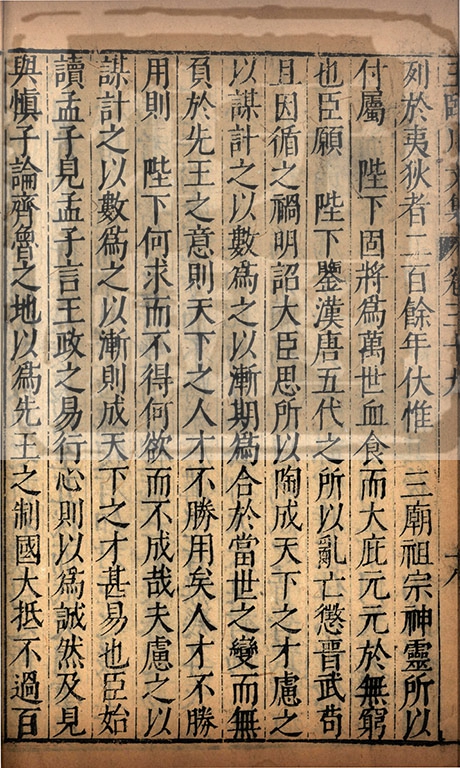 王臨川文集 卷三十九 十八
列於夷狄者二百餘年伏惟 三廟祖宗神靈所以
付屬 陛下固將爲萬世血食而大庇元元於無窮
也臣願 陛下鑒漢唐五代之所以亂亡懲晉武茍
且因循之禍明詔大臣思所以陶成天下之才慮之
以謀計之以數爲之以漸期爲合於當世之變而無
負於先王之意則天下之人才不勝用矣人才不勝
用則 陛下何求而不得何欲而不成哉夫慮之以
謀計之以數爲之以漸則成天下之才甚易也臣始
讀孟子見孟子言王政之易行心則以爲誠然及見
與慎子論齊魯之地以爲先王之制國大抵不過百